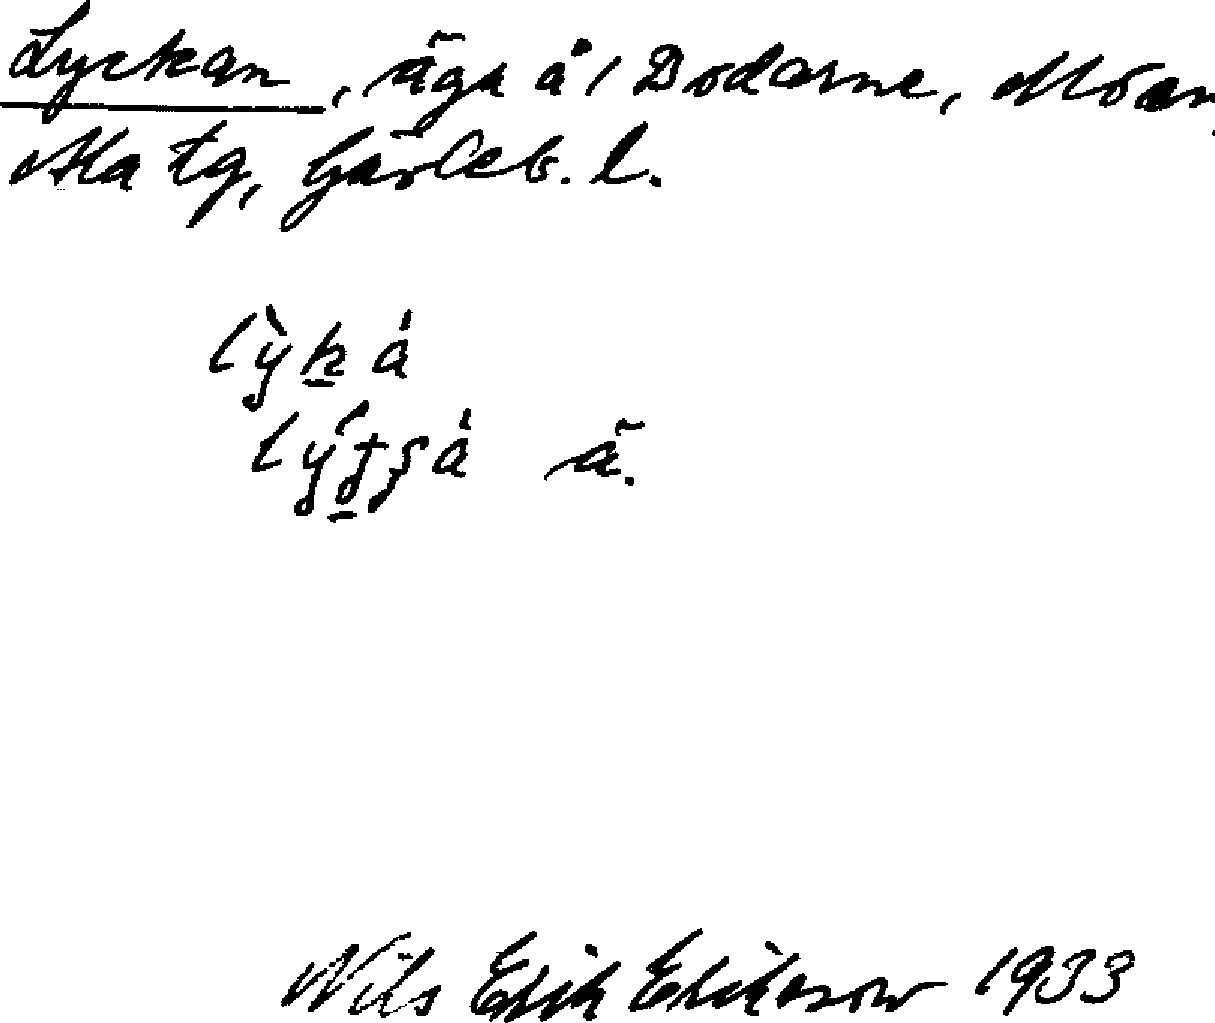 Lyckan, äga å 1 Bodarne, Möan,
Ma tg, Gävleb. l.
lỳk̲å
lýt̲ʂå ä.
Nils Erik Eriksson 1933